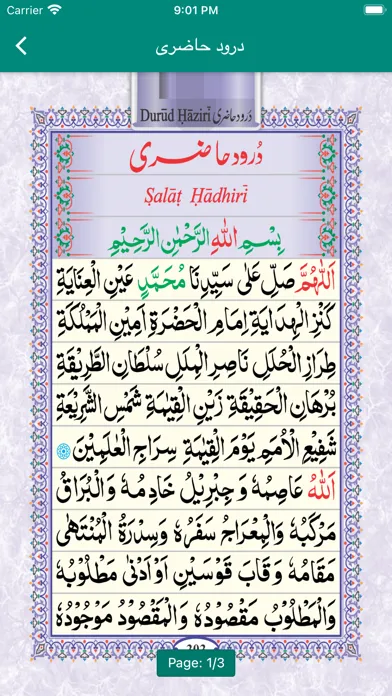 Carrier 9:01 PM
درود حاضری
Durūd Ḥāzirī دُرود حاضری
دُرود حاضری
Ṣalāṭ Ḥādhirī
بِسْمِ اللهِ الرَّحْمٰنِ الرَّحِيْمِ
اَللّٰهُمَّ صَلِّ عَلٰى سَيِّدِنَا مُحَمَّدٍ عَيْنِ الْعِنَايَةِ
كَنْزِ الْهِدَايَةِ اِمَامِ الْحَضْرَةِ اَمِيْنِ الْمَمْلَكَةِ
طِرَازِ الْحُلَلِ نَاصِرِ الْمِلَلِ سُلْطَانِ الطَّرِيْقَةِ
بُرْهَانِ الْحَقِيْقَةِ زَيْنِ الْقِيٰمَةِ شَمْسِ الشَّرِيْعَةِ
شَفِيْعِ الْاُمَمِ يَوْمَ الْقِيٰمَةِ سِرَاجِ الْعٰلَمِيْنَ
اَللهُ عَاصِمُهٗ وَ جِبْرِيْلُ خَادِمُهٗ وَ الْبُرَاقُ
مَرْكَبُهٗ وَالْمِعْرَاجُ سَفَرُهٗ وَسِدْرَةُ الْمُنْتَهٰى
مَقَامُهٗ وَ قَابَ قَوْسَيْنِ اَوْ اَدْنٰى مَطْلُوْبُهٗ
وَالْمَطْلُوْبُ مَقْصُوْدُهٗ وَالْمَقْصُوْدُ مَوْجُوْدُهٗ
Page: 1/3